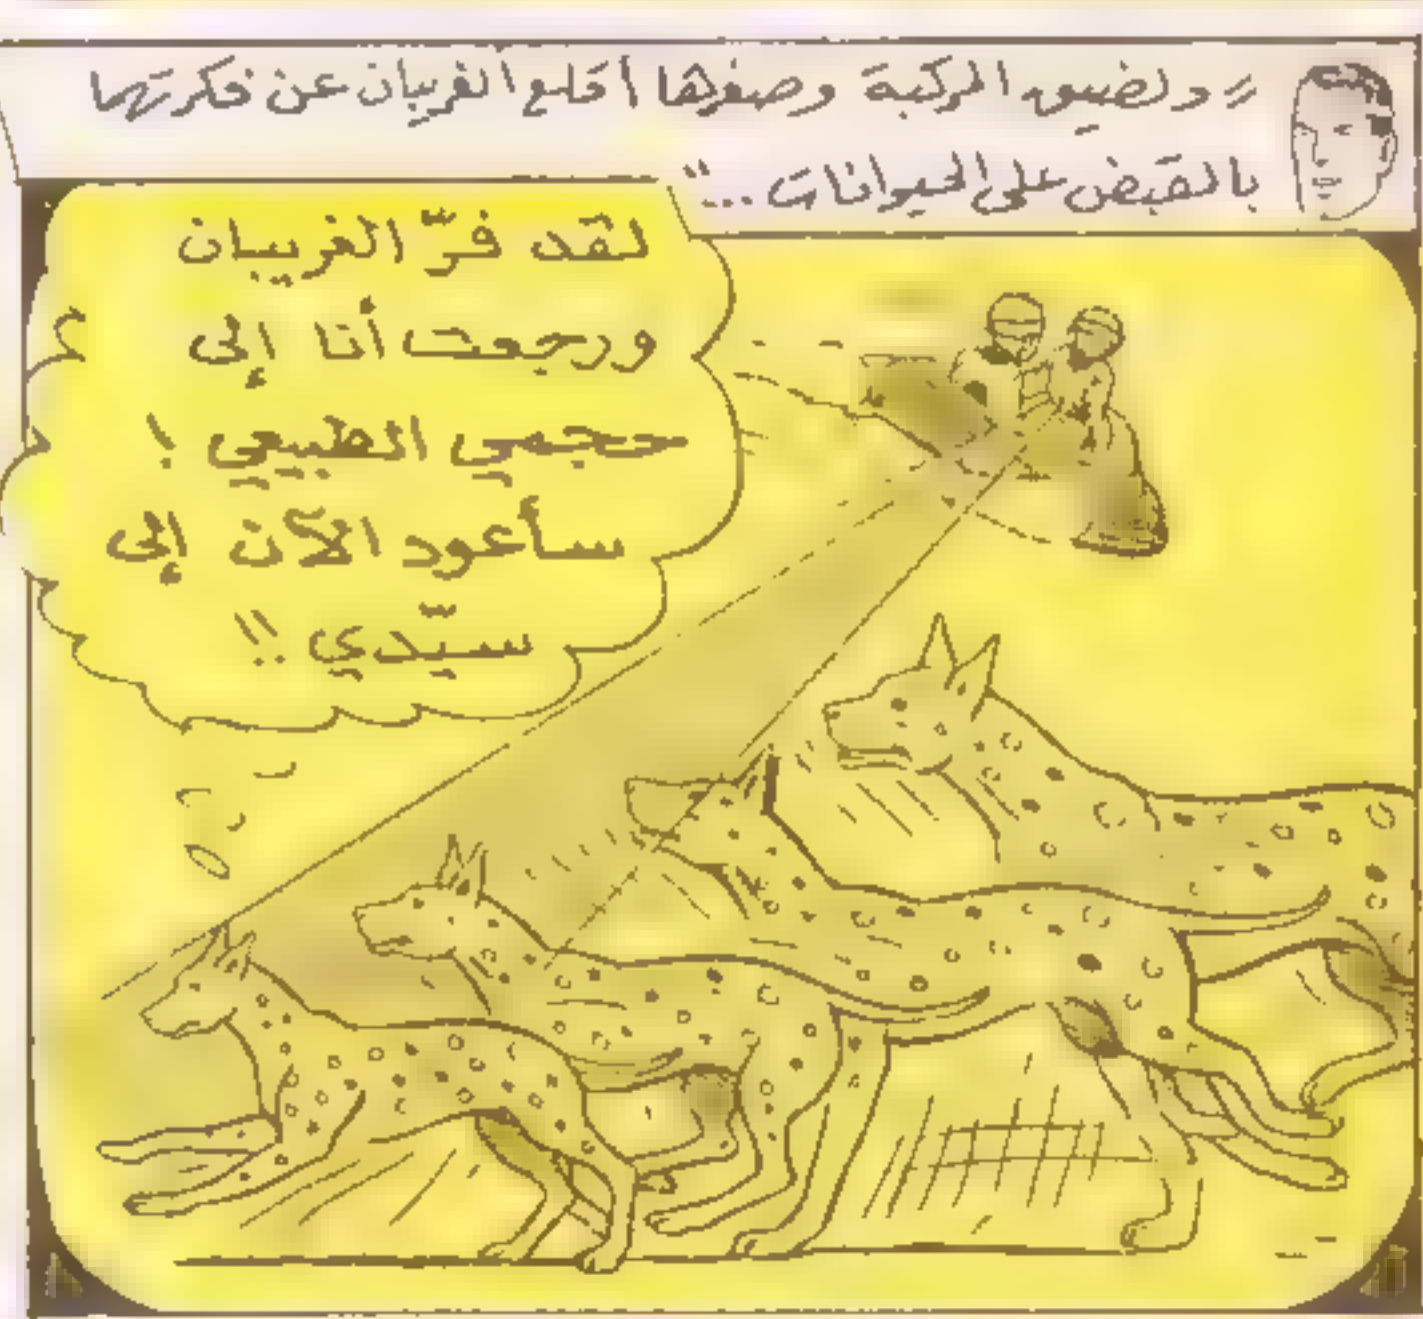 "ولضيق المركبة وصغرها أقلع الغريبان عن فكرتهما
بالقبض على الحيوانات..."
لقد فرّ الغريبان
ورجعت أنا إلى
حجمي الطبيعي !
سأعود الآن إلى
سيّدي !!